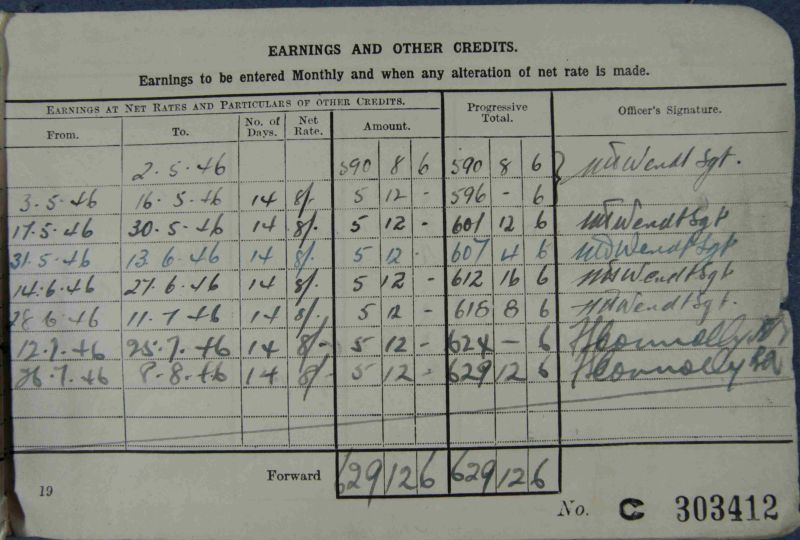 EARNINGS AND OTHER CREDITS.
Earnings to be entered Monthly and when any alteration of net rate is made.
EARNINGS AT NET RATES AND PARTICULARS OF OTHER CREDITS. Progressive Total. Officer's Signature.
From. To. No. of Days. Net Rate. Amount.
2.5.46 590 8 6 590 8 6 Wendt Sgt.
3.5.46 16.5.46 14 8/. 5 12 - 596 - 6
17.5.46 30.5.46 14 8/. 5 12 - 601 12 6 Wendt Sgt
31.5.46 13.6.46 14 8/. 5 12 - 607 4 6 Wendt Sgt
14.6.46 27.6.46 14 8/. 5 12 - 612 16 6 Wendt Sgt
28.6.46 11.7.46 14 8/. 5 12 - 618 8 6 Wendt Sgt.
12.7.46 25.7.46 14 8/- 5 12 - 624 - 6 Connolly
26.7.46 8.8.46 14 8/- 5 12 - 629 12 6 Connolly
Forward 629 12 6 629 12 6
19
No. C 303412